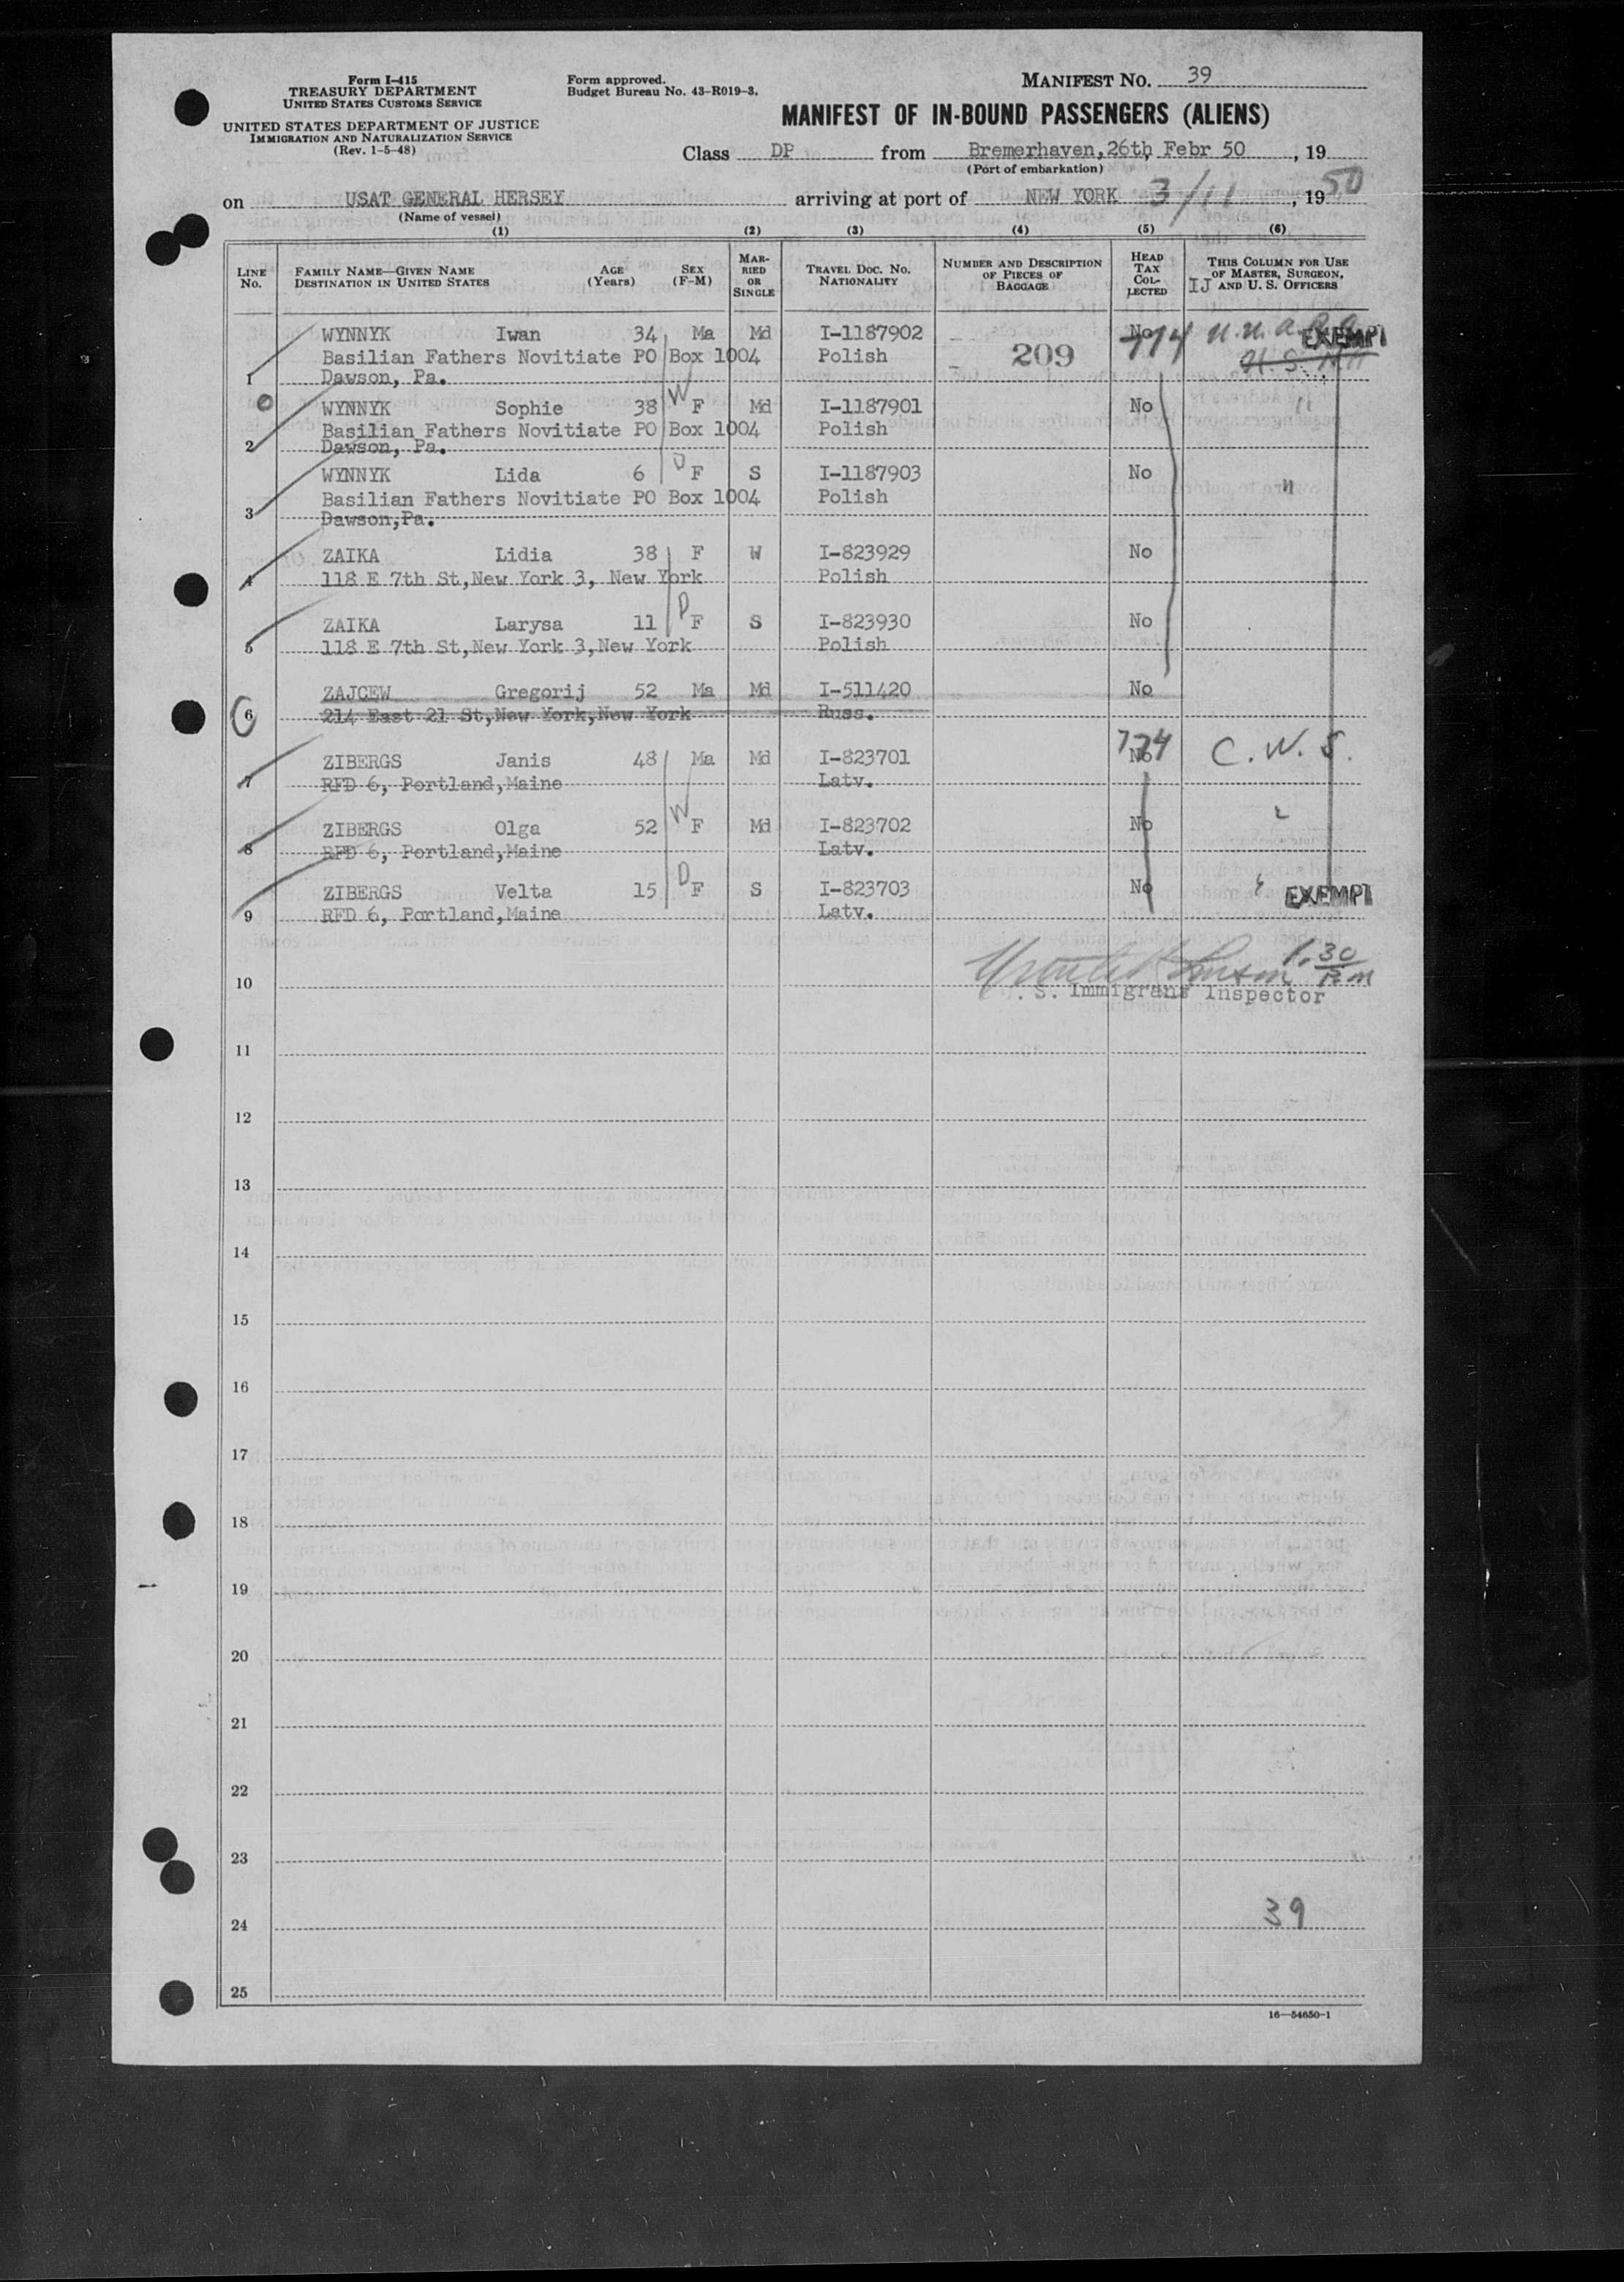 Form I-415
TREASURY DEPARTMENT
UNITED STATES CUSTOMS SERVICE
UNITED STATES DEPARTMENT OF JUSTICE
IMMIGRATION AND NATURALIZATION SERVICE
(Rev. 1-5-48)
Form approved.
Budget Bureau No. 43-R019-3.
MANIFEST No. 39
MANIFEST OF IN-BOUND PASSENGERS (ALIENS)
Class DP from Bremerhaven, 26th Febr 50, 19
(Port of embarkation)
on USAT GENERAL HERSEY arriving at port of NEW YORK 3/11, 1950
(Name of vessel)
(1) (2) (3) (4) (5) (6)
LINE No. FAMILY NAME—GIVEN NAME DESTINATION IN UNITED STATES AGE (Years) SEX (F-M) MARRIED OR SINGLE TRAVEL DOC. NO. NATIONALITY NUMBER AND DESCRIPTION OF PIECES OF BAGGAGE HEAD TAX COLLECTED THIS COLUMN FOR USE OF MASTER, SURGEON, AND U. S. OFFICERS IJ
WYNNYK Iwan 34 Ma Md I-1187902 No 774 EXEMPT
Basilian Fathers Novitiate PO Box 1004 Polish 209
1 Dawson, Pa.
W
WYNNYK Sophie 38 F Md I-1187901 No "
Basilian Fathers Novitiate PO Box 1004 Polish
2 Dawson, Pa.
D
WYNNYK Lida 6 F S I-1187903 No "
Basilian Fathers Novitiate PO Box 1004 Polish
3 Dawson,Pa.
ZAIKA Lidia 38 F W I-823929 No
4 118 E 7th St,New York 3, New York Polish
D
ZAIKA Larysa 11 F S I-823930 No
5 118 E 7th St,New York 3,New York Polish
ZAJCEW Gregorij 52 Ma Md I-511420 No
6 214 East 21 St,New York,New York Russ.
ZIBERGS Janis 48 Ma Md I-823701 No 774 C.W.S.
7 RFD 6, Portland,Maine Latv.
W
ZIBERGS Olga 52 F Md I-823702 No "
8 RFD 6, Portland,Maine Latv.
D
ZIBERGS Velta 15 F S I-823703 No " EXEMPT
9 RFD 6, Portland,Maine Latv.
1.30 P.m
10 . S. Immigrant Inspector
11
12
13
14
15
16
17
18
19
20
21
22
23
24 39
25
16—54650-1